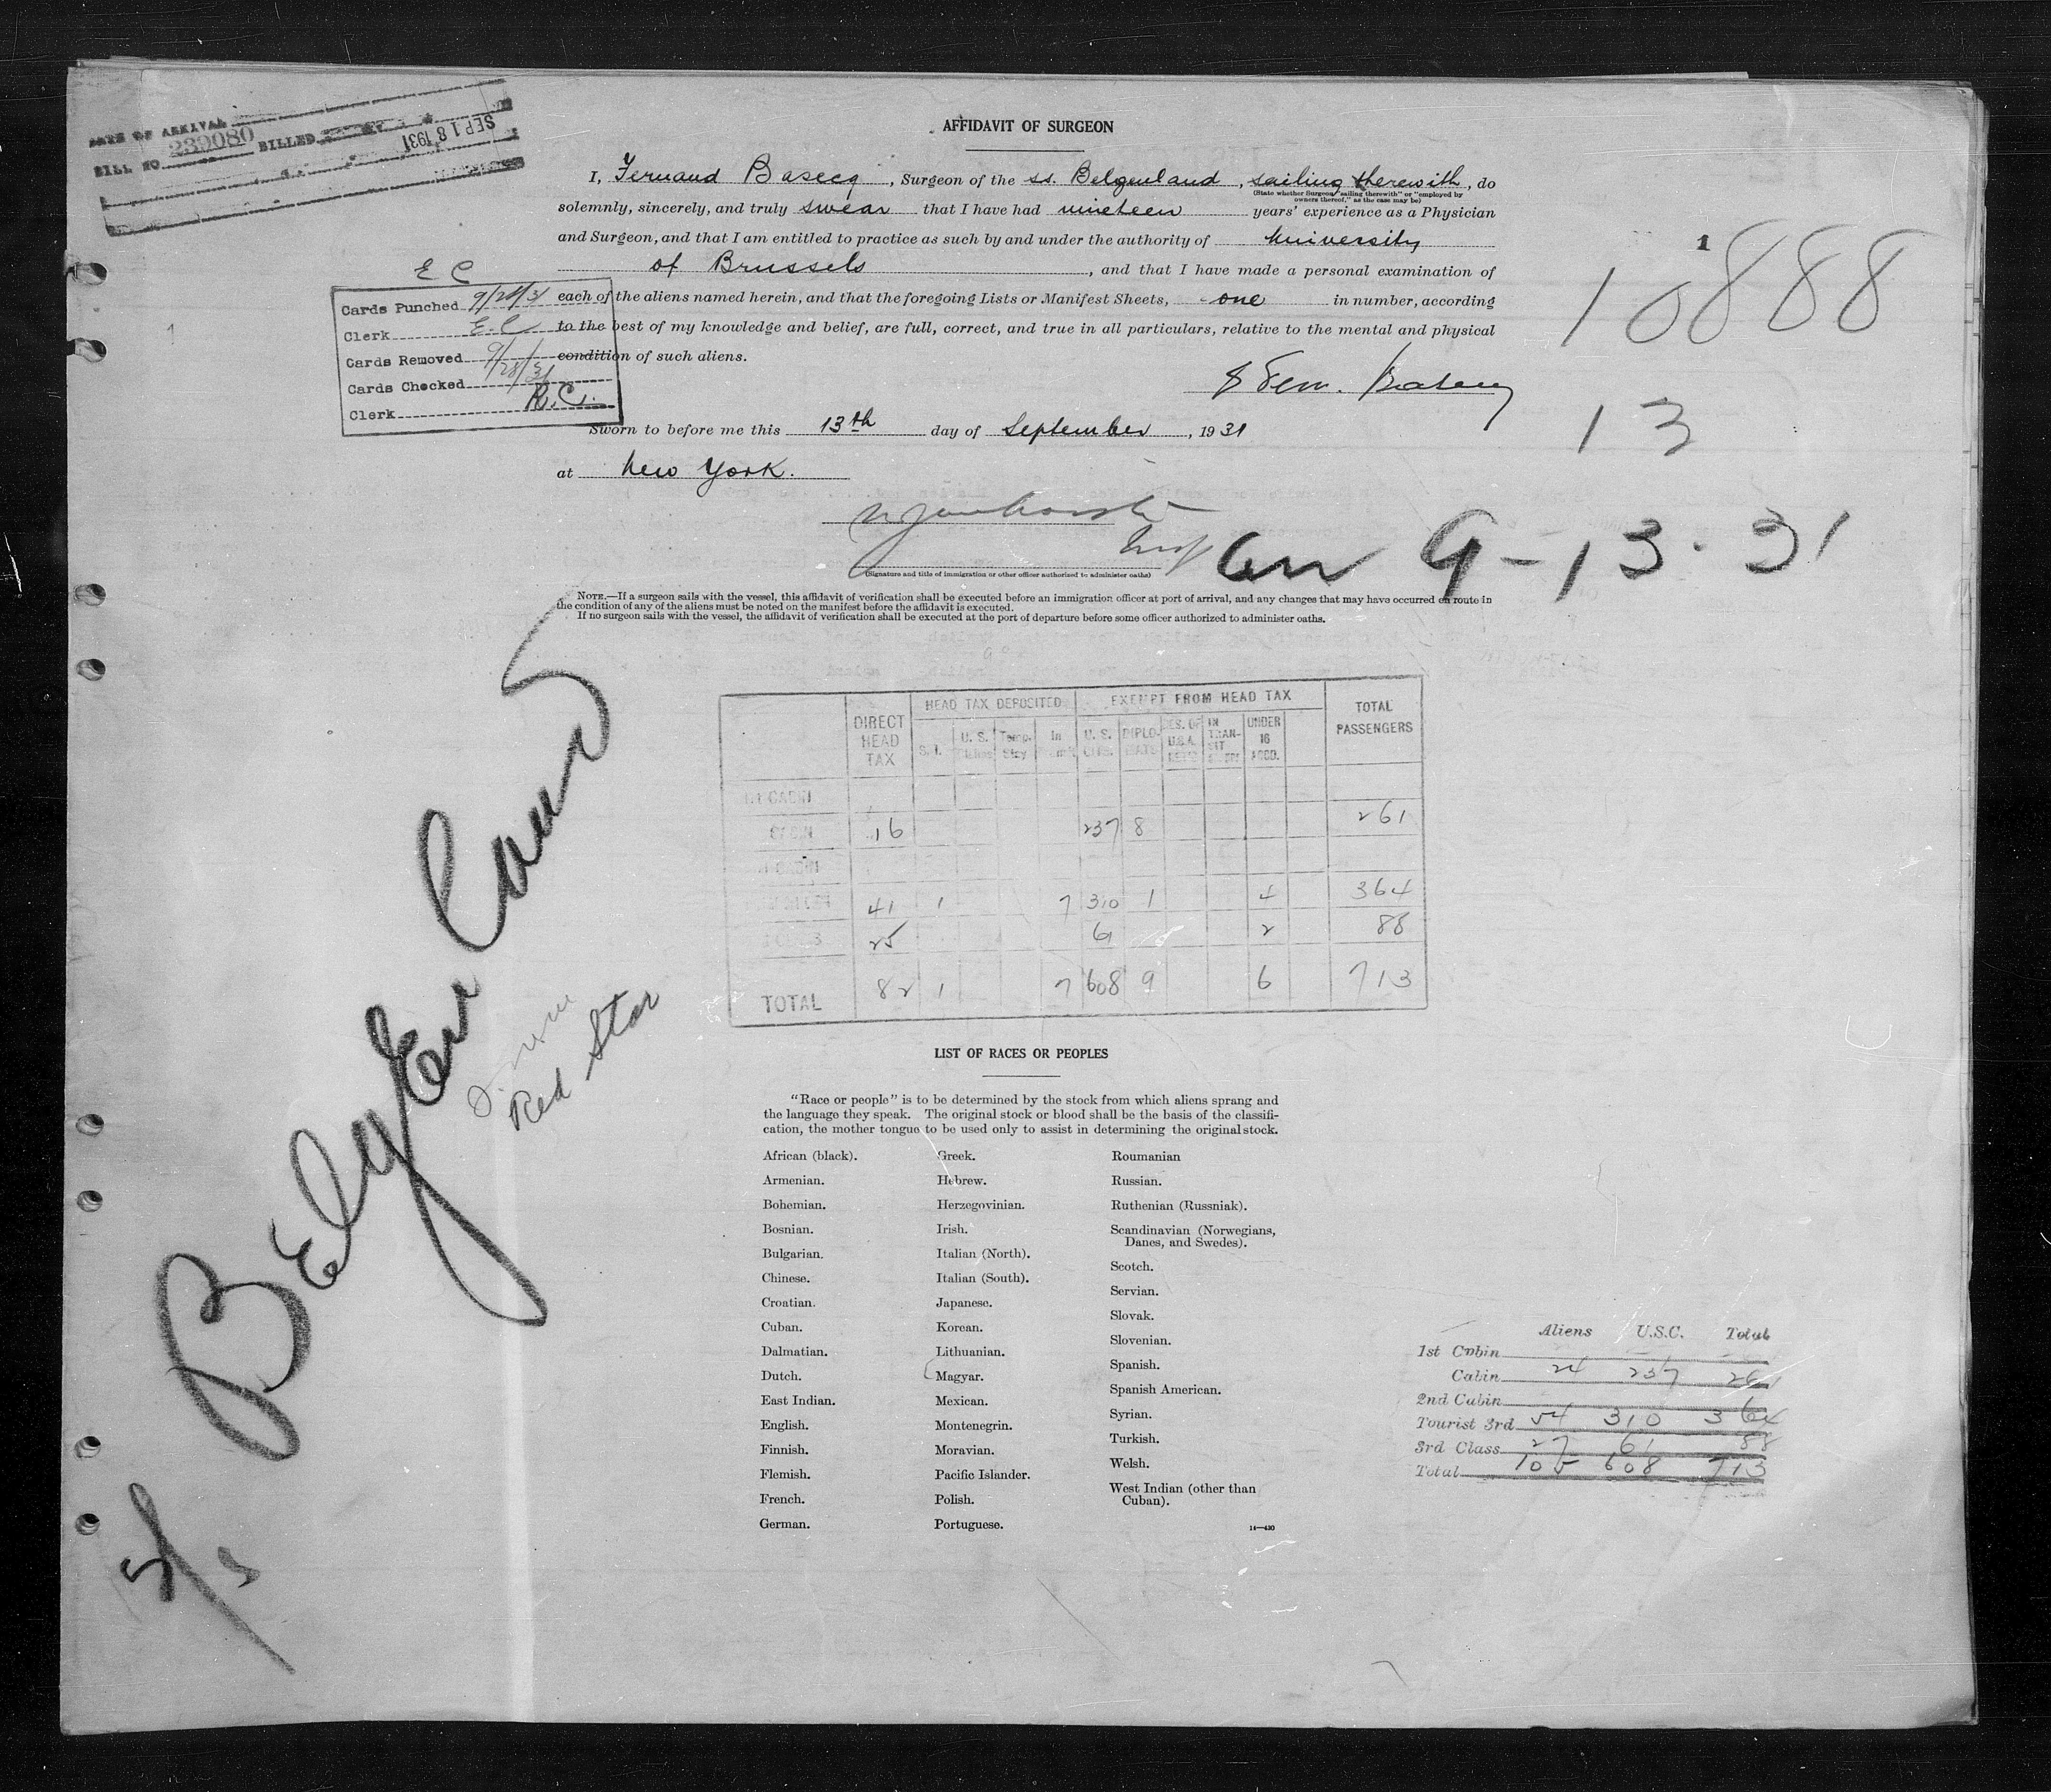 DATE OF ARRIVAL
BILL NO 239080 BILLED
SEP 18 1931
AFFIDAVIT OF SURGEON
I, Fernand Basecq, Surgeon of the ss. Belgenland, sailing therewith, do
(State whether Surgeon "sailing therewith" or "employed by
owners thereof," as the case may be)
solemnly, sincerely, and truly swear that I have had nineteen years' experience as a Physician
and Surgeon, and that I am entitled to practice as such by and under the authority of University
of Brussels, and that I have made a personal examination of
each of the aliens named herein, and that the foregoing Lists or Manifest Sheets, one in number, according
to the best of my knowledge and belief, are full, correct, and true in all particulars, relative to the mental and physical
condition of such aliens.
E C
Cards Punched 9/28/31
Clerk E.C
Cards Removed
Cards Checked 9/28/31
Clerk R.C.
1
1
10888
13
Sworn to before me this 13th day of September, 1931
at New York.
9-13-31
(Signature and title of immigration or other officer authorized to administer oaths)
NOTE.—If a surgeon sails with the vessel, this affidavit of verification shall be executed before an immigration officer at port of arrival, and any changes that may have occurred en route in
the condition of any of the aliens must be noted on the manifest before the affidavit is executed.
If no surgeon sails with the vessel, the affidavit of verification shall be executed at the port of departure before some officer authorized to administer oaths.
BElgEnland
Red Star
DIRECT HEAD TAX HEAD TAX DEPOSITED EXEMPT FROM HEAD TAX TOTAL PASSENGERS
S.I. U.S. Temp. Stay In U.S. DIPLO- RES. OF U.S.A. IN TRAN-SIT UNDER 16
CABIN 16 237 8 261
41 1 7 310 1 4 364
25 61 2 88
TOTAL 82 1 7 608 9 6 713
LIST OF RACES OR PEOPLES
"Race or people" is to be determined by the stock from which aliens sprang and
the language they speak. The original stock or blood shall be the basis of the classifi-
cation, the mother tongue to be used only to assist in determining the original stock.
African (black).
Armenian.
Bohemian.
Bosnian.
Bulgarian.
Chinese.
Croatian.
Cuban.
Dalmatian.
Dutch.
East Indian.
English.
Finnish.
Flemish.
French.
German.
Greek.
Hebrew.
Herzegovinian.
Irish.
Italian (North).
Italian (South).
Japanese.
Korean.
Lithuanian.
Magyar.
Mexican.
Montenegrin.
Moravian.
Pacific Islander.
Polish.
Portuguese.
Roumanian
Russian.
Ruthenian (Russniak).
Scandinavian (Norwegians,
Danes, and Swedes).
Scotch.
Servian.
Slovak.
Slovenian.
Spanish.
Spanish American.
Syrian.
Turkish.
Welsh.
West Indian (other than
Cuban).
14—430
Aliens U.S.C. Total
1st Cabin
Cabin 24 237 261
2nd Cabin
Tourist 3rd 54 310 364
3rd Class 27 61 88
Total 105 608 713